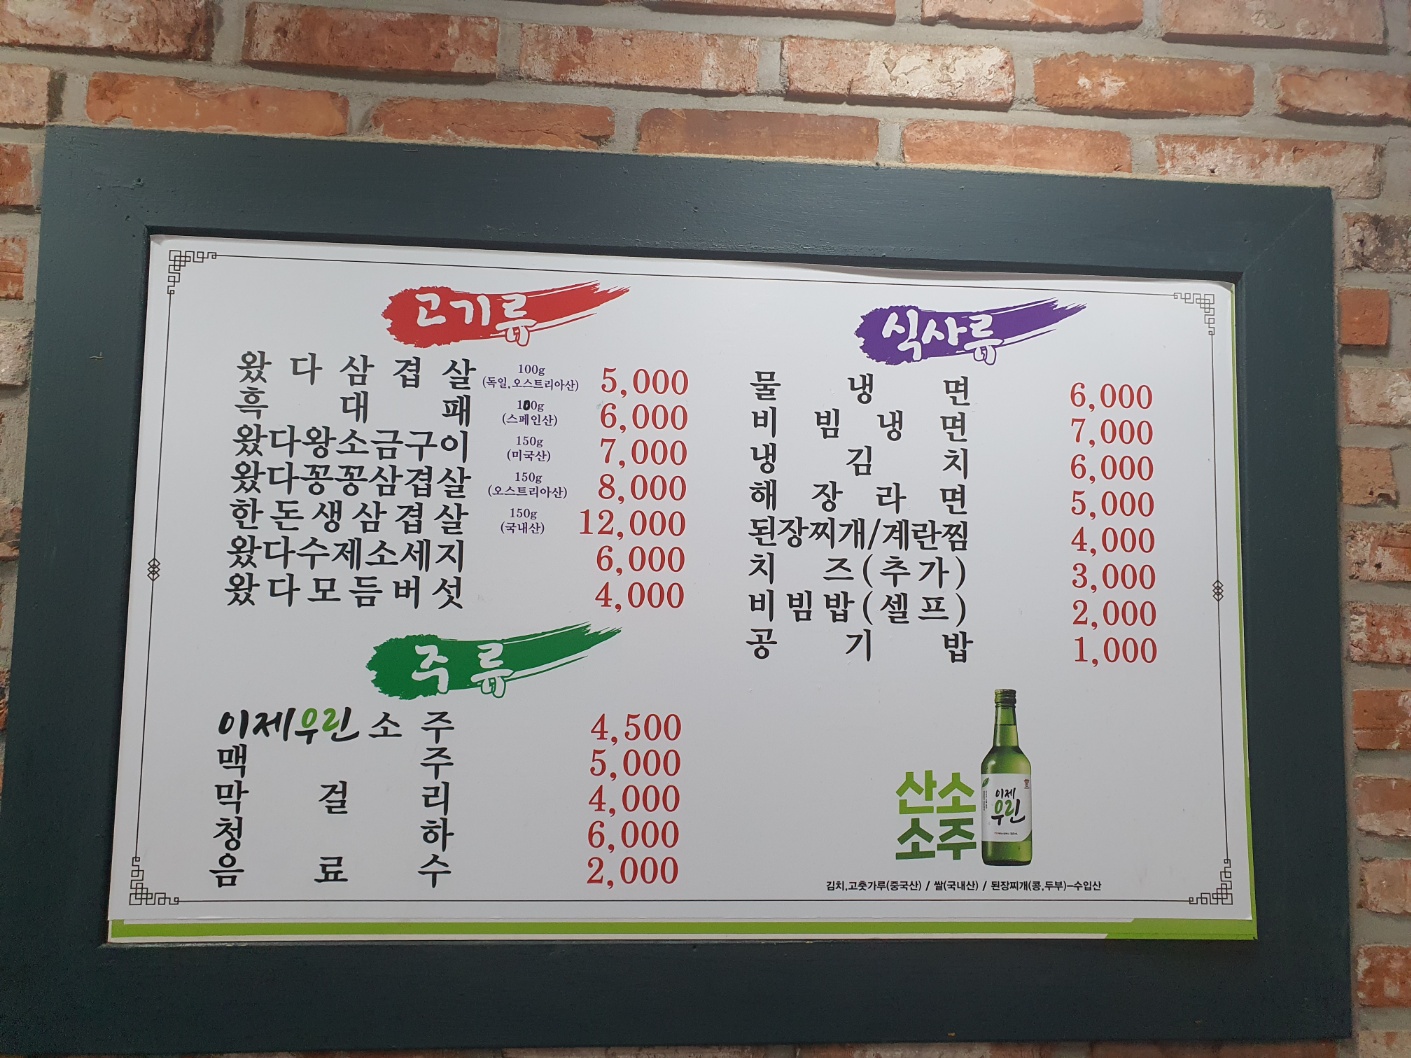 고기류
왔다삼겹살 100g (독일,오스트리아산) 5,000
흑대패 100g (스페인산) 6,000
왔다왕소금구이 150g (미국산) 7,000
왔다꽁꽁삼겹살 150g (오스트리아산) 8,000
한돈생삼겹살 150g (국내산) 12,000
왔다수제소세지 6,000
왔다모듬버섯 4,000
주류
이제우린 소주 4,500
맥주 5,000
막걸리 4,000
청하 6,000
음료수 2,000
식사류
물냉면 6,000
비빔냉면 7,000
냉김치 6,000
해장라면 5,000
된장찌개/계란찜 4,000
치즈(추가) 3,000
비빔밥(셀프) 2,000
공기밥 1,000
산소
소주
이제
우린
김치,고춧가루(중국산) / 쌀(국내산) / 된장찌개(콩,두부)-수입산